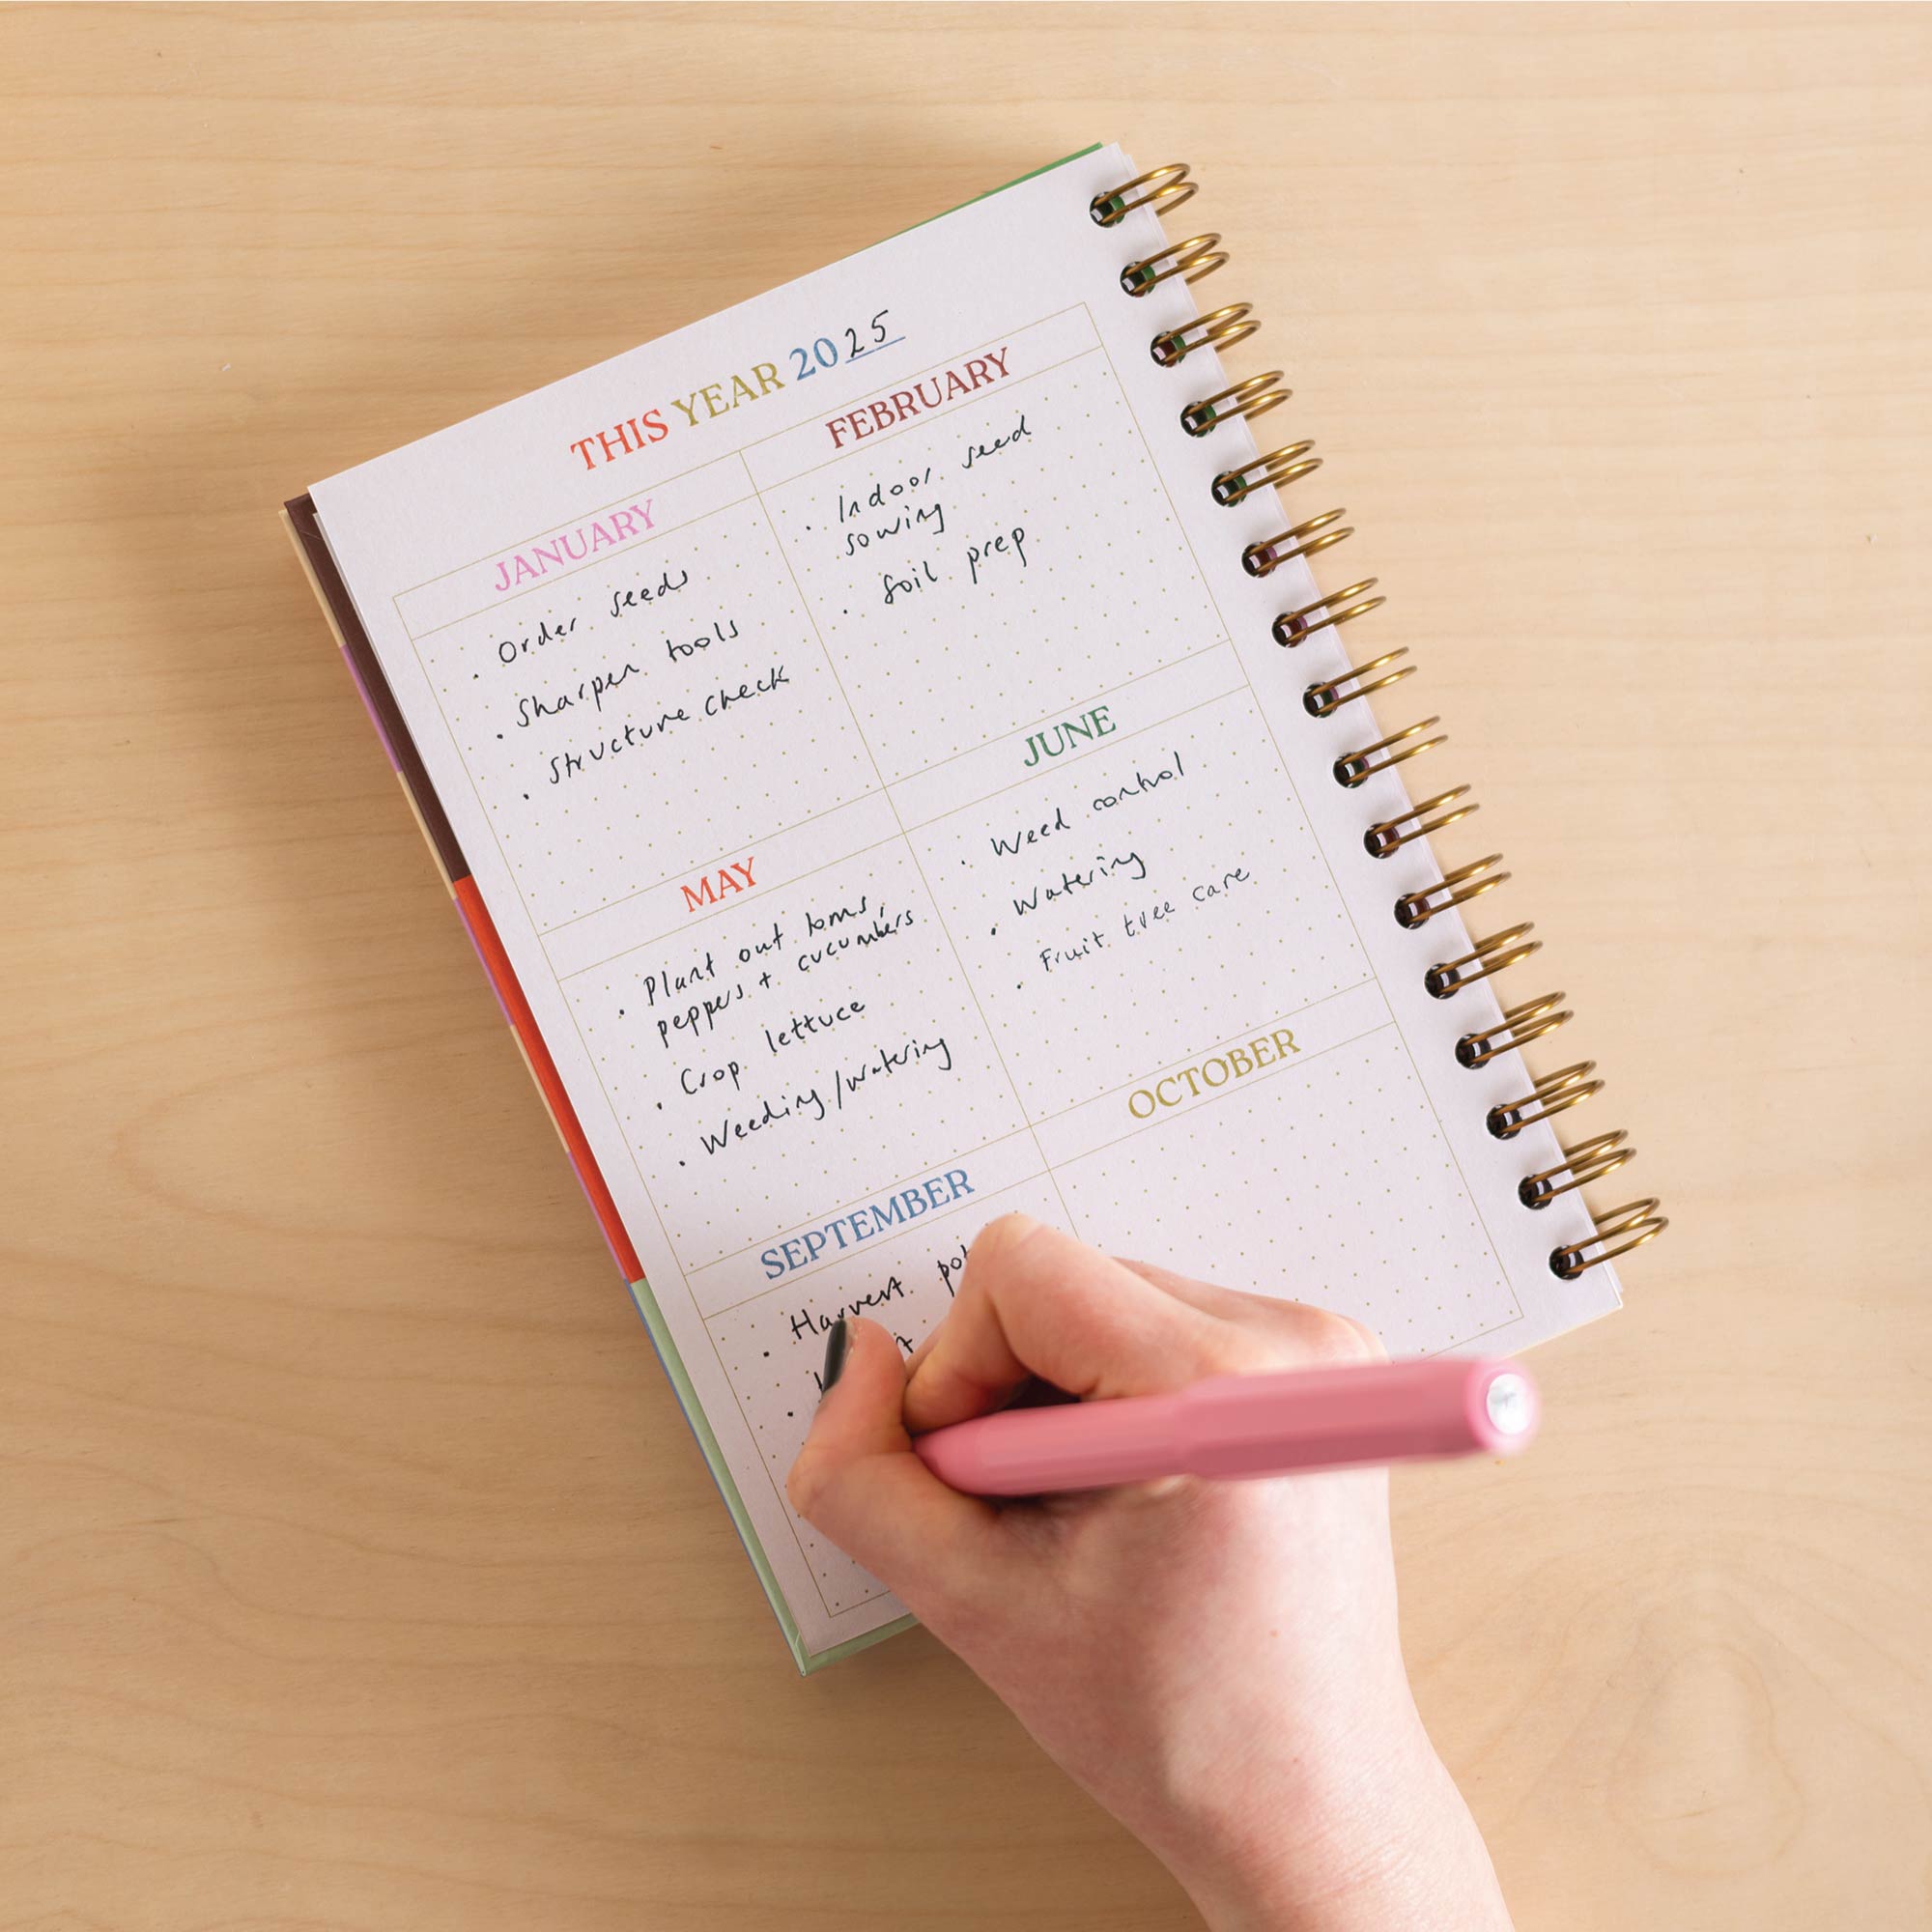 THIS YEAR 2025
JANUARY
· Order seeds
· Sharpen tools
· Structure check
FEBRUARY
· Indoor seed
sowing
· Soil prep
MAY
· Plant out toms,
peppers + cucumbers
· Crop lettuce
· Weeding/watering
JUNE
· Weed control
· Watering
· Fruit tree care
SEPTEMBER
· Harvest
OCTOBER